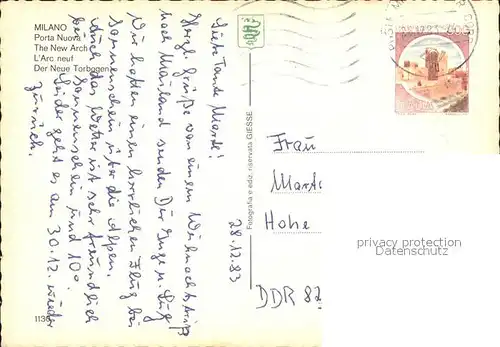 MILANO
Porta Nuova
The New Arch
L'Arc neuf
Der Neue Torbogen
Liebe Tante Marte!
Herzl. Grüße von einem Weihnachtstrip
nach Mailand senden Dir Inge u.
Wir hatten einen herrlichen Flug bei
Sonnenschein über die Alpen.
Auch das Wetter ist sehr freundlich
bei Sonnenschein und 10°.
Leider geht es am 30.12. wieder
zurück.
28.12.83
Fotografia e ediz. riservata GIESSE
Frau
Mart
Hohe
DDR 82
privacy protection
Datenschutz
1136